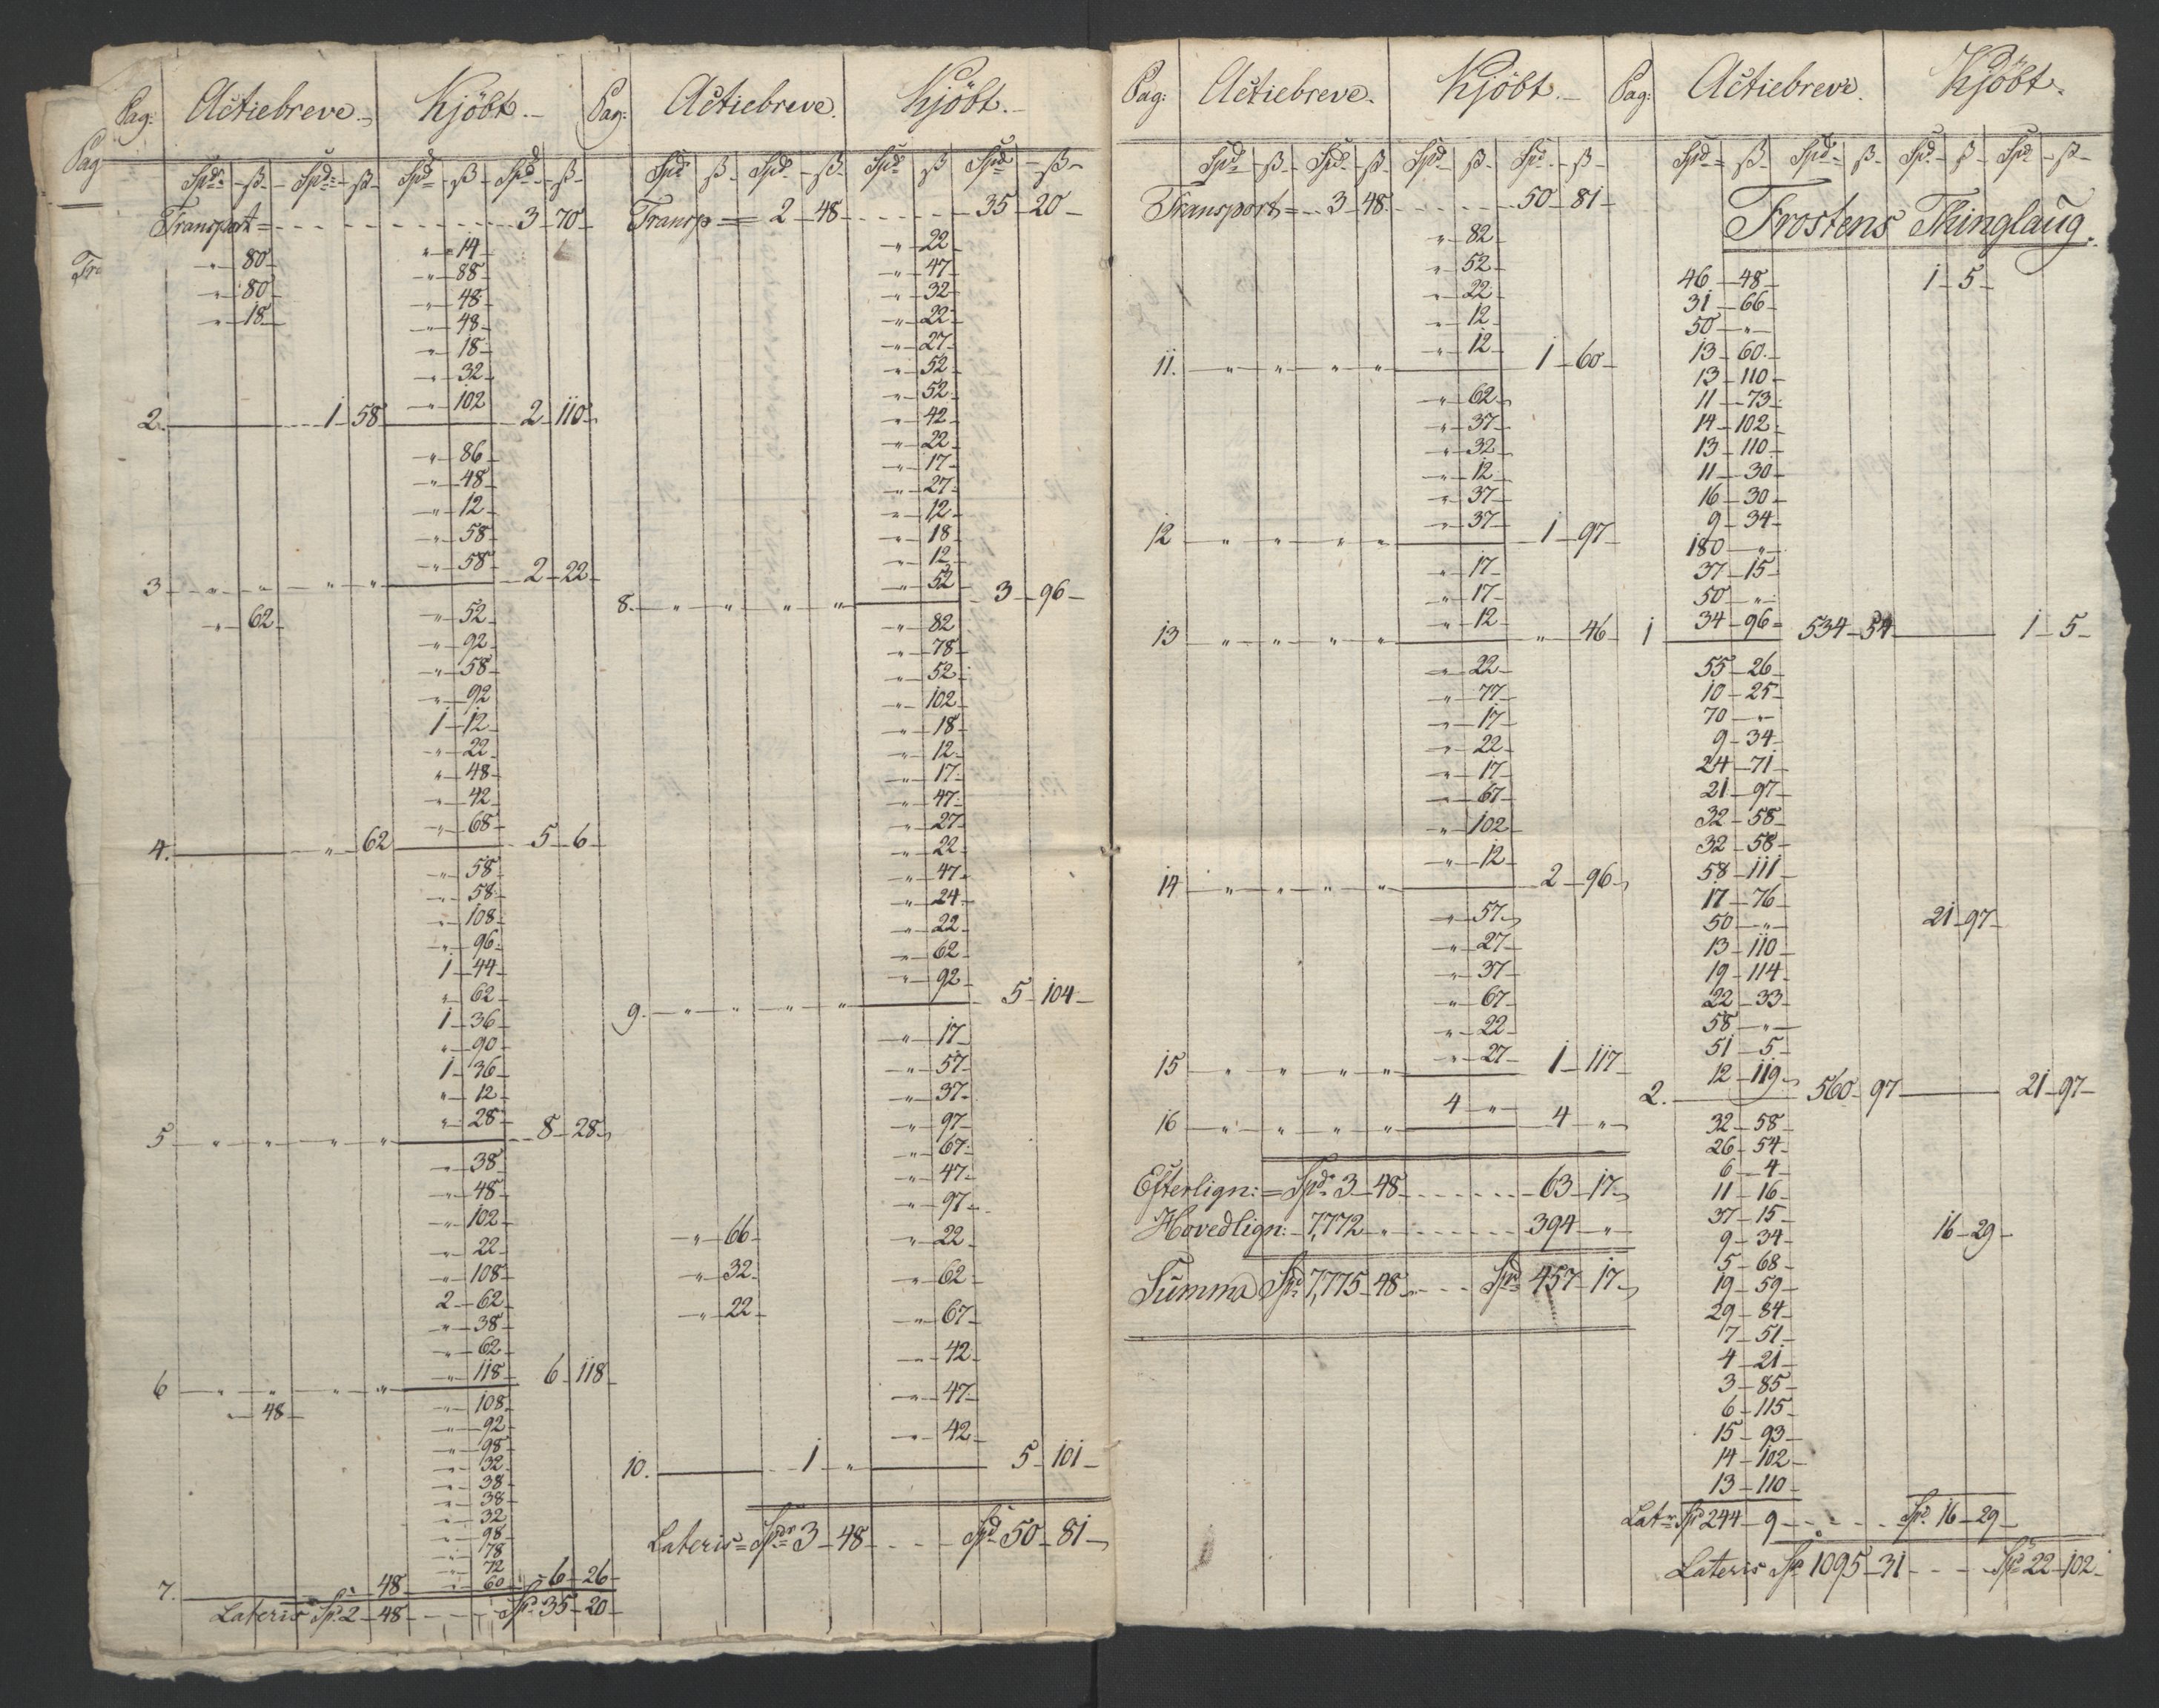 Pag: Actiebreve. Kjöbt.
Spd ß Spd ß Spd ß Spd ß
Transport= 3 70
" 80 " 14
" 80 " 88
" 18 " 48
" 48
" 18
" 32
" 102
2. 1 58 2 110
" 86
" 48
" 12
" 58
" 58
3 " " " " 2 22
" 62 " 52
" 92
" 58
" 92
1 12
" 22
" 48
" 42
" 68
4. " 62 5 6
" 58
" 58
" 108
" 96
1 44
" 62
1 36
" 90
1 36
" 12
" 28
5 " " " " 8 28
" 38
" 48
" 102
" 22
" 108
2 62
" 38
" 62
" 118
6 " " " " 6 118
" 48 " 108
" 92
" 98
" 32
" 38
" 38
" 32
" 98
" 78
" 72
" 60
7. 48 6 26
Lateris Spd 2 48 Spd 35 20
Pag: Actiebreve. Kjöbt.
Spd ß Spd ß Spd ß Spd ß
Transp= 2 48 35 20
" 22
" 47
" 32
" 22
" 27
" 52
" 52
" 42
" 22
" 17
" 27
" 12
" 18
" 12
" 52
8. " " " " 3 96
" 82
" 78
" 52
" 102
" 18
" 12
" 17
" 47
" 27
" 22
" 47
" 24
" 22
" 62
" 92
9. " " " " 5 104
" 17
" 57
" 37
" 97
" 67
" 47
" 97
" 66 " 22
" 32 " 62
" 22 " 67
" 42
" 47
" 42
10. 1 " 5 101
Lateris= Spdr 3 48 Spd 50 81
Pag: Actiebreve. Kjöbt.
Spd ß Spd ß Spd ß Spd ß
Transport= 3 48 50 81
" 82
" 52
" 22
" 12
" 12
11. " " " " 1 60
" 62
" 37
" 32
" 12
" 37
" 37
12 " " " " 1 97
" 17
" 17
" 12
13 " " " " " 46
" 22
" 77
" 17
" 22
" 17
" 67
" 102
" 12
14 " " " " 2 96
" 57
" 27
" 37
" 67
" 22
" 27
15 " " " " 1 117
4 "
16 " " " " 4 "
Efterlign:= Spdr 3 48 63 17
Hovedlign: 7,772 " 394 "
Summa Spd 7,775 48 Spd 457 17
Pag: Actiebreve. Kjöbt.
Spd ß Spd ß Spd ß Spd ß
Frostens Thinglaug.
46 48 1 5
31 66
50 "
13 60
13 110
11 73
14 102
13 110
11 30
16 30
9 34
180 "
37 15
50 "
34 96
1 534 54 1 5
55 26
10 25
70 "
9 34
24 71
21 97
32 58
32 58
58 111
17 76
50 " 21 97
13 110
19 114
22 33
58 "
51 5
12 119
2. 560 97 21 97
32 58
26 54
6 4
11 16
37 15
9 34 16 29
5 68
19 59
29 84
7 51
4 21
3 85
6 115
15 93
14 102
13 110
Lat= Spd 244 9 Spd 16 29
Lateris Spd 1095 31 Spd 22 102
Pag